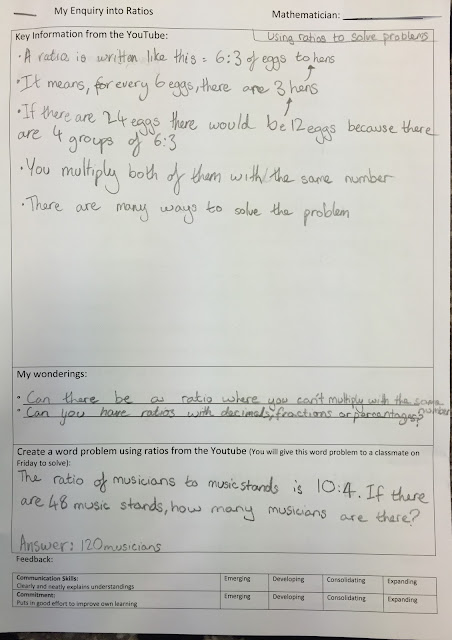 My Enquiry into Ratios
Mathematician:
Key Information from the YouTube:
Using ratios to solve problems
• A ratio is written like this: 6:3 of eggs to hens
• It means, for every 6 eggs, there are 3 hens
• If there are 24 eggs there would be 12 eggs because there
are 4 groups of 6:3
• You multiply both of them with the same number
• There are many ways to solve the problem
My wonderings:
• Can there be a ratio where you can't multiply with the same
number
• Can you have ratios with decimals, fractions or percentages?
Create a word problem using ratios from the Youtube (You will give this word problem to a classmate on
Friday to solve):
The ratio of musicians to music stands is 10:4. If there
are 48 music stands, how many musicians are there?
Answer: 120 musicians
Feedback:
Communication Skills:
Clearly and neatly explains understandings
Emerging Developing Consolidating Expanding
Commitment:
Puts in good effort to improve own learning
Emerging Developing Consolidating Expanding